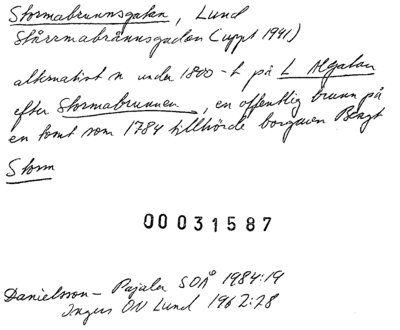 Stormabrunnsgatan, Lund
Stårrmabrånnsgadan (uppt 1941)
alternativt n under 1800-t på L Algatan
efter Stormabrunnen, en offentlig brunn på
en tomt som 1784 tillhörde borgaren Bengt
Storm
00031587
Danielsson - Pajala SOÅ 1984:19
Ingers ON Lund 1962:28